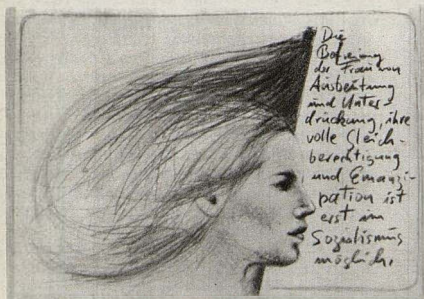 Die
Befreiung
der Frau von
Ausbeutung
und Unter-
drückung, ihre
volle Gleich-
berechtigung
und Emanzi-
pation ist
erst im
Sozialismus
möglich.